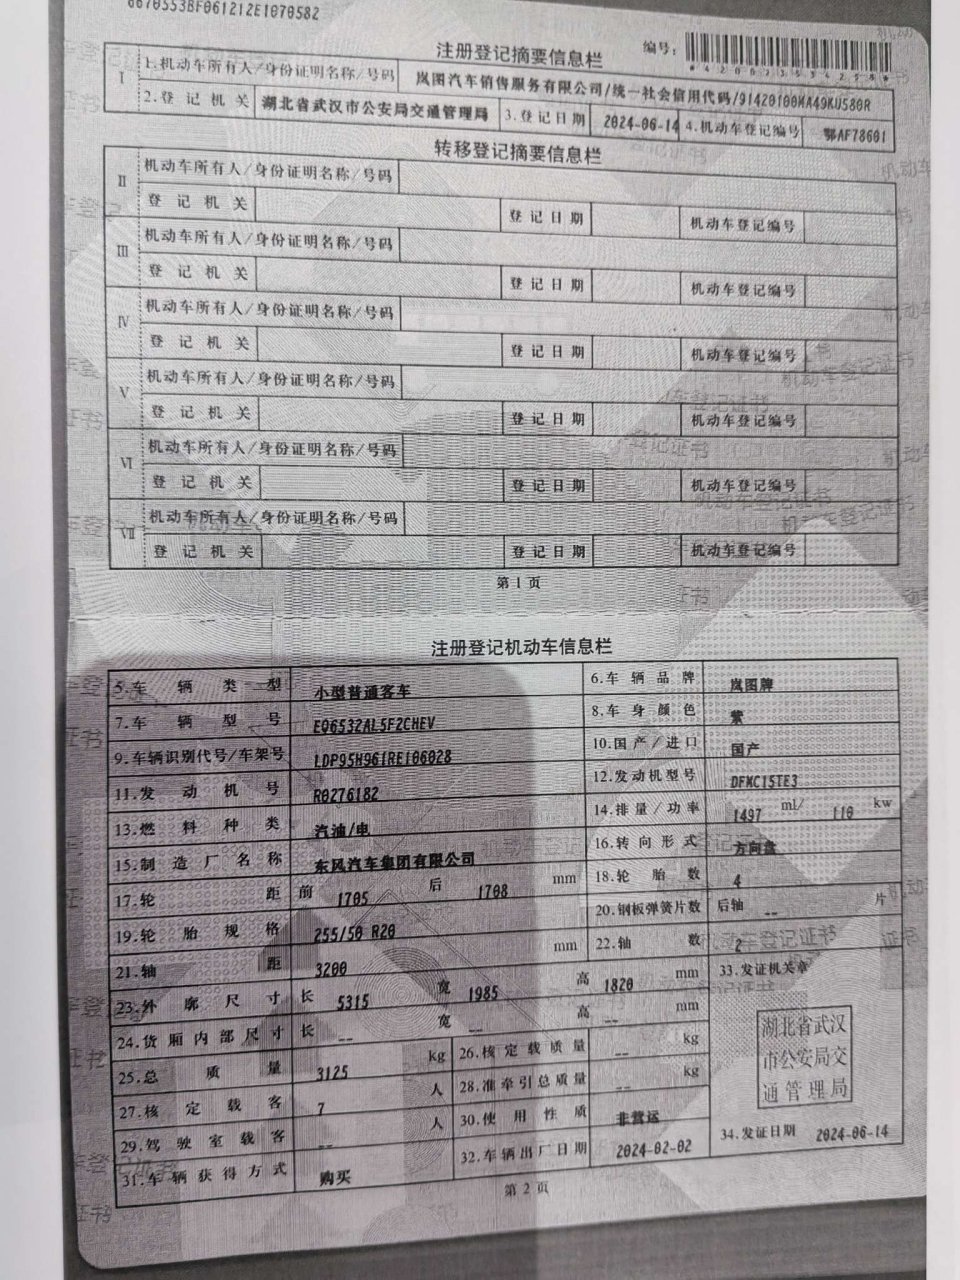 6670553BF061212E1070582
注册登记摘要信息栏
编号:
*420023534258*
I
1.机动车所有人/身份证明名称/号码 岚图汽车销售服务有限公司/统一社会信用代码/91420100MA49KU580R
2.登记机关 湖北省武汉市公安局交通管理局 3.登记日期 2024-06-14 4.机动车登记编号 鄂AF78601
转移登记摘要信息栏
II
机动车所有人/身份证明名称/号码
登记机关 登记日期 机动车登记编号
III
机动车所有人/身份证明名称/号码
登记机关 登记日期 机动车登记编号
IV
机动车所有人/身份证明名称/号码
登记机关 登记日期 机动车登记编号
V
机动车所有人/身份证明名称/号码
登记机关 登记日期 机动车登记编号
VI
机动车所有人/身份证明名称/号码
登记机关 登记日期 机动车登记编号
VII
机动车所有人/身份证明名称/号码
登记机关 登记日期 机动车登记编号
第1页
注册登记机动车信息栏
5.车辆类型 小型普通客车 6.车辆品牌 岚图牌
7.车辆型号 EQ6532AL5F2CHEV 8.车身颜色 紫
9.车辆识别代号/车架号 LDP95H961RE106028 10.国产/进口 国产
11.发动机号 R0276182 12.发动机型号 DFMC15TE3
13.燃料种类 汽油/电 14.排量/功率 1497 ml/ 110 kw
15.制造厂名称 东风汽车集团有限公司 16.转向形式 方向盘
17.轮距 前 1705 后 1708 mm 18.轮胎数 4
19.轮胎规格 255/50 R20 20.钢板弹簧片数 后轴 -- 片
21.轴距 3200 mm 22.轴数 2
23.外廓尺寸 长 5315 宽 1985 高 1820 mm 33.发证机关章
24.货厢内部尺寸 长 -- 宽 -- 高 -- mm
25.总质量 3125 kg 26.核定载质量 -- kg
27.核定载客 7 人 28.准牵引总质量 -- kg
29.驾驶室载客 -- 人 30.使用性质 非营运
31.车辆获得方式 购买 32.车辆出厂日期 2024-02-02 34.发证日期 2024-06-14
湖北省武汉
市公安局交
通管理局
第2页